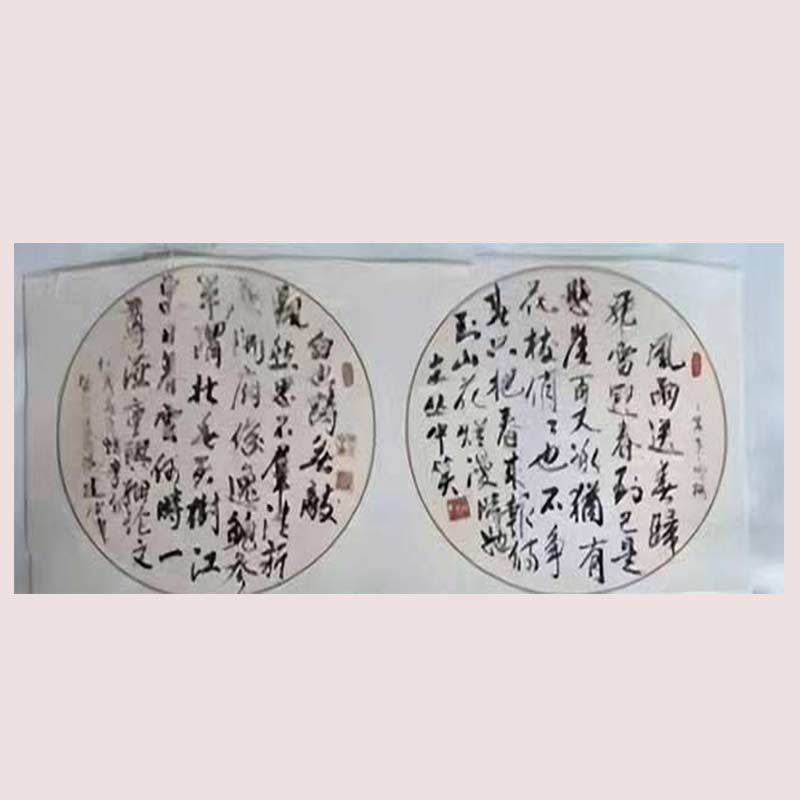 風雨送春歸
飛雪迎春到已是
懸崖百丈冰猶有
花枝俏〻也不爭
春只把春來報待
到山花爛漫時她
在丛中笑
白也詩無敵
飄然思不羣清新
庾開府俊逸鮑參
軍渭北春天樹江
東日暮雲何時一
尊酒重與細論文